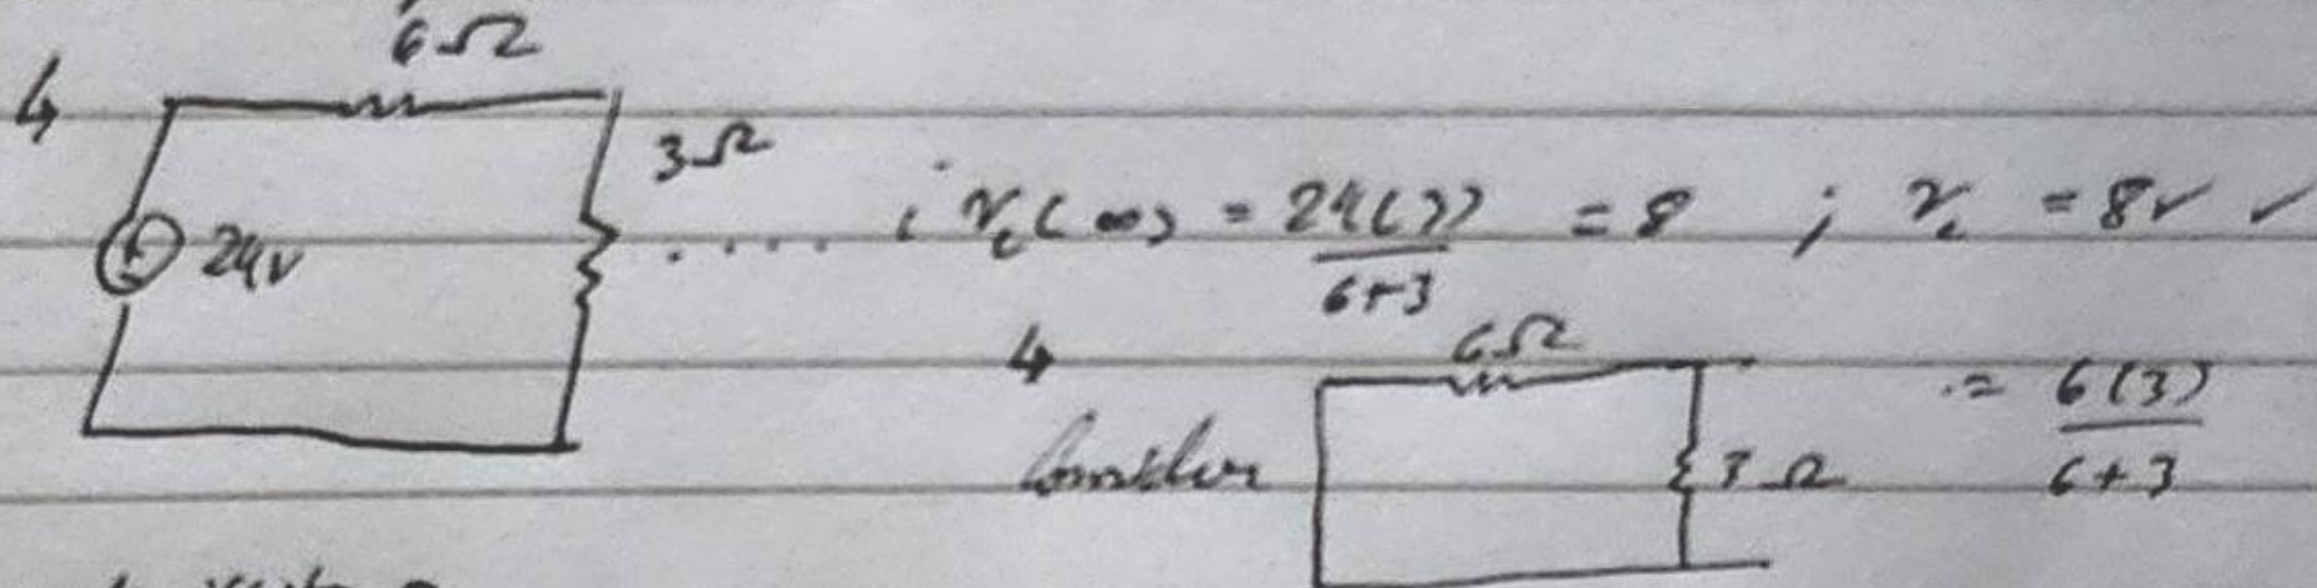 6Ω
3Ω
24v
..... ; v_c(∞) = 24(3)/6+3 = 8 ; v_c = 8v ✓
6Ω
Consider
3Ω
= 6(3)/6+3